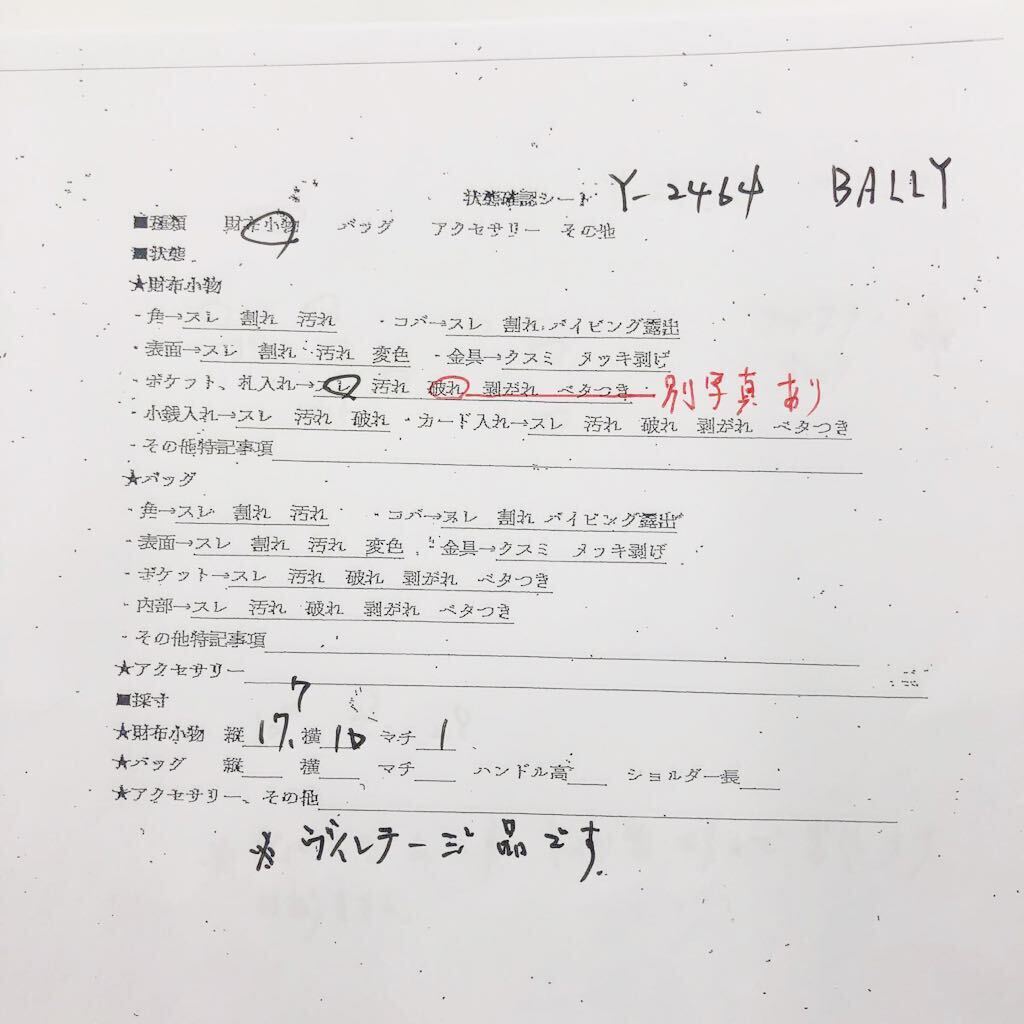 状態確認シート Y-2464 BALLY
■種類 財布小物 バッグ アクセサリー その他
■状態
★財布小物
・角→スレ 割れ 汚れ ・コバ→スレ 割れ パイピング露出
・表面→スレ 割れ 汚れ 変色 ・金具→クスミ メッキ剥げ
・ポケット、札入れ→スレ 汚れ 破れ 剥がれ ベタつき 別写真あり
・小銭入れ→スレ 汚れ 破れ ・カード入れ→スレ 汚れ 破れ 剥がれ ベタつき
・その他特記事項
★バッグ
・角→スレ 割れ 汚れ ・コバ→スレ 割れ パイピング露出
・表面→スレ 割れ 汚れ 変色 ・金具→クスミ メッキ剥げ
・ポケット→スレ 汚れ 破れ 剥がれ ベタつき
・内部→スレ 汚れ 破れ 剥がれ ベタつき
・その他特記事項
★アクセサリー
■採寸
★財布小物 縦 17.7 横 10 マチ 1
★バッグ 縦 横 マチ ハンドル高 ショルダー長
★アクセサリー、その他
※ヴィレテージ品です.